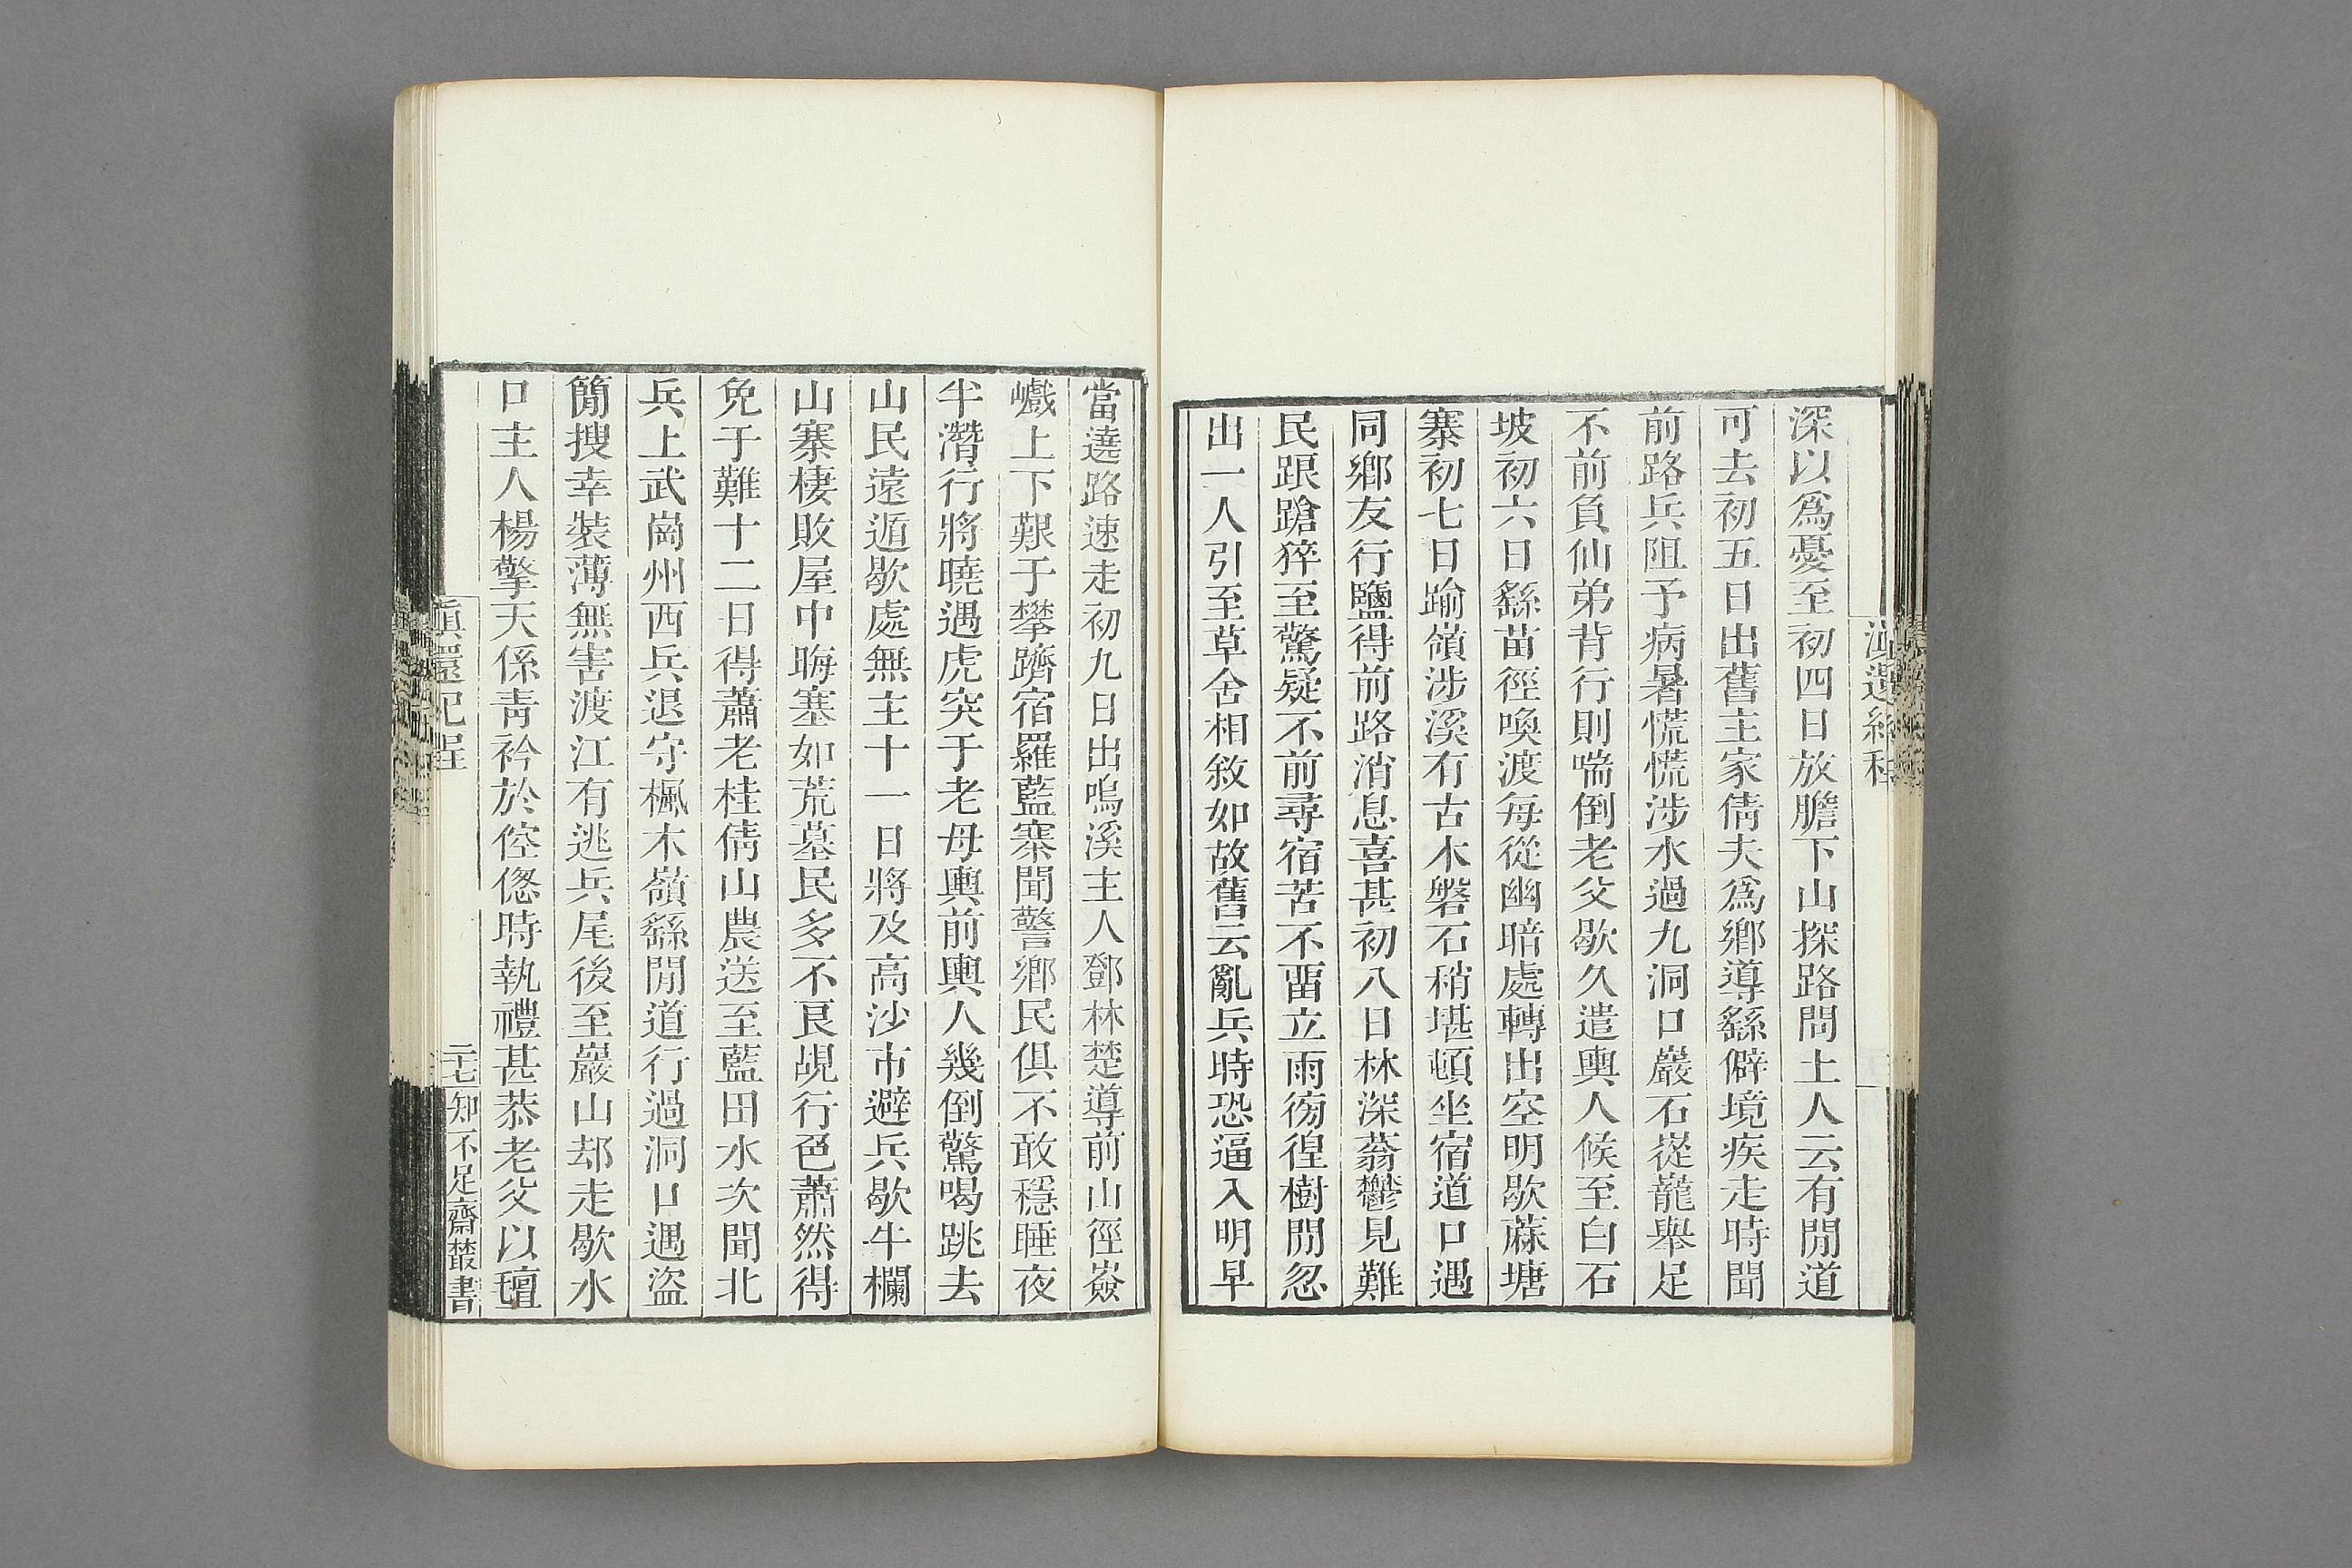 深以爲憂至初四日放膽下山探路問土人云有閒道
可去初五日出舊主家倩夫爲鄉導繇僻境疾走時聞
前路兵阻予病暑慌慌涉水過九洞口巖石嵸巃舉足
不前負仙弟背行則喘倒老父歇久遣輿人候至白石
坡初六日繇苗徑喚渡每從幽暗處轉出空明歇蔴塘
寨初七日踰嶺涉溪有古木磐石稍堪頓坐宿道口遇
同鄉友行鹽得前路消息喜甚初八日林深蓊鬱見難
民踉蹌猝至驚疑不前尋宿苦不畱立雨徬徨樹閒忽
出一人引至草舍相敘如故舊云亂兵時恐逼入明早
當遶路速走初九日出嗚溪主人鄧林楚導前山徑嶮
巇上下艱于攀躋宿羅藍寨聞警鄉民俱不敢穩睡夜
半潛行將曉遇虎突于老母輿前輿人幾倒驚喝跳去
山民遠遁歇處無主十一日將及高沙市避兵歇牛欄
山寨棲敗屋中晦塞如荒墓民多不良覘行色蕭然得
免于難十二日得蕭老桂倩山農送至藍田水次聞北
兵上武崗州西兵退守楓木嶺繇閒道行過洞口遇盜
簡搜幸裝薄無害渡江有逃兵尾後至巖山却走歇水
口主人楊擎天係靑衿於倥傯時執禮甚恭老父以氊
滇還記程
二十七
知不足齋叢書